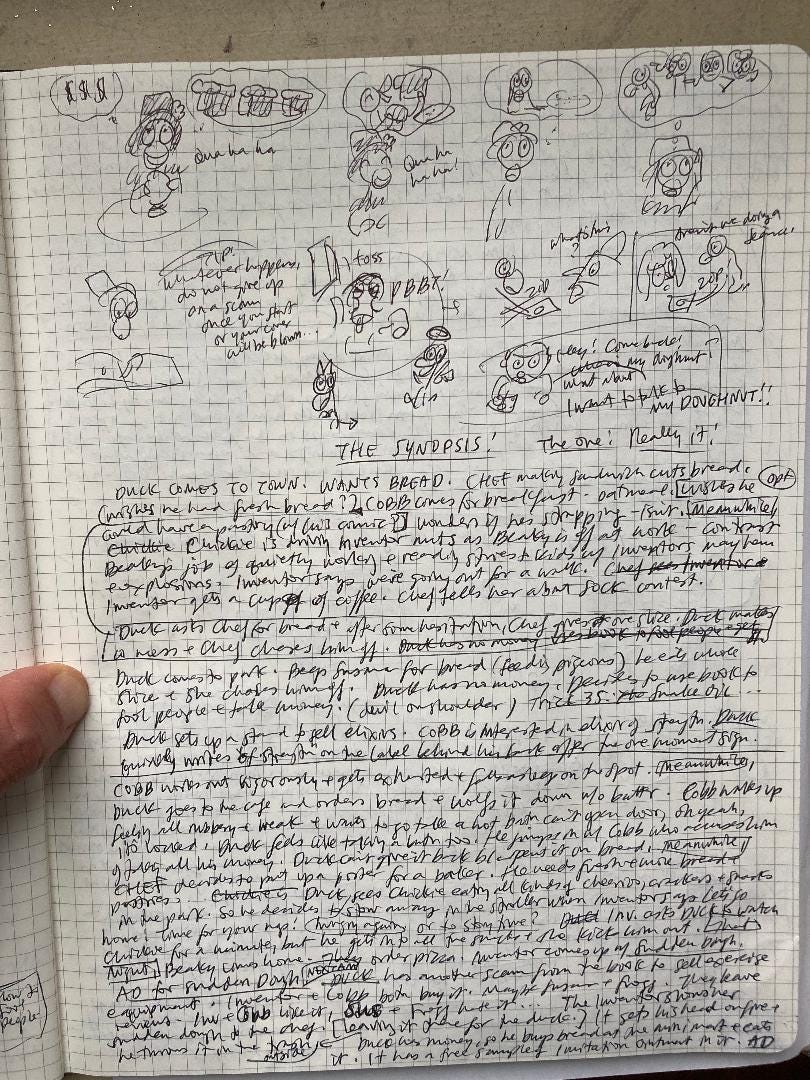 $ $ $
Qua ha ha
Qua ha
ha ha!
What's this
?
Aren't we doing a
séance?
ZIP!
Whatever happens,
do not give up
on a scam
once you start
or your cover
will be blown...
toss
PBBT!
ZOP
ZOP
Hey! Come back!
my doughnut!
what about
I want to talk to
my DOUGHNUT!!
THE SYNOPSIS! The one! Really it!
DUCK COMES TO TOWN. WANTS BREAD. CHEF making sandwich cuts bread.
(wishes he had fresh bread?) COBB comes for breakfast - oatmeal. wishes he opt
could have a pastry (w/ comic?) wonders if has strapping - isn't. Meanwhile
Chickie Chickie is driving Inventor nuts as Beaky is off at work - contrast
Beakys job of quietly working + reading stories to kids w/ Inventors mayhem
+ explosions. Inventor says we're going out for a walk. Chef sees Inventor +
Inventor gets a cup of coffee. Chef tells her about SOCK contest.
Duck asks Chef for bread + after some hesitation, Chef gives one slice. Duck makes
a mess + Chef chases him off. Duck has no money. Uses book to fool people + get
Duck comes to park. Begs Susane for bread (feeding pigeons) he eats whole
slice + she chases him off. Duck has no money. Decides to use book to
fool people + take money. (devil on shoulder) Trick 35: Snake Oil ...
Duck sets up a stand to sell elixirs. COBB is interested in elixir of strength. Duck
quickly writes of strength on the label behind his back after the one moment sign.
COBB works out vigorously + gets exhausted + falls asleep on the spot. Meanwhile,
Duck goes to the cafe and orders bread + wolfs it down w/o butter. Cobb wakes up
feeling all rubbery + weak + wants to go take a hot bath can't open door, oh yeah,
it's locked. Duck feels like taking a bath too. He jumps in w/ Cobb who accuses him
of taking all his money. Duck can't give it back b/c spent it on bread. Meanwhile
CHEF decides to put up a poster for a baker. He needs fresh + more bread +
pastries. Chickie is Duck sees Chickie eating all kinds of cheerios, crackers + snacks
in the park. So he decides to stow away in the stroller when Inventor says let's go
home! time for your nap! (hungry again) or to story time? Duck Inv. asks Duck to watch
Chickie for a minute, but he gets into all the snacks + she kicks him out. That
Night, Beaky comes home. They order pizza. Inventor comes up w/ Sudden Dough.
AD for Sudden Dough Next AM Duck has another scam from the book to sell exercise
equipment. Inventor + Cobb both buy it. Maybe Susane + Frogg. They
review. Inv + Cobb like it, Sus + Frogg hate it... They leave
The Inventor shows her
sudden dough to the chef. (leaving it there for the duck.) It sets his head on fire +
he throws it in the trash outside Duck has money, so he buys bread at the mini mart + eats
it. It has a free sample of imitation ointment in it. AD
how to
fool
people